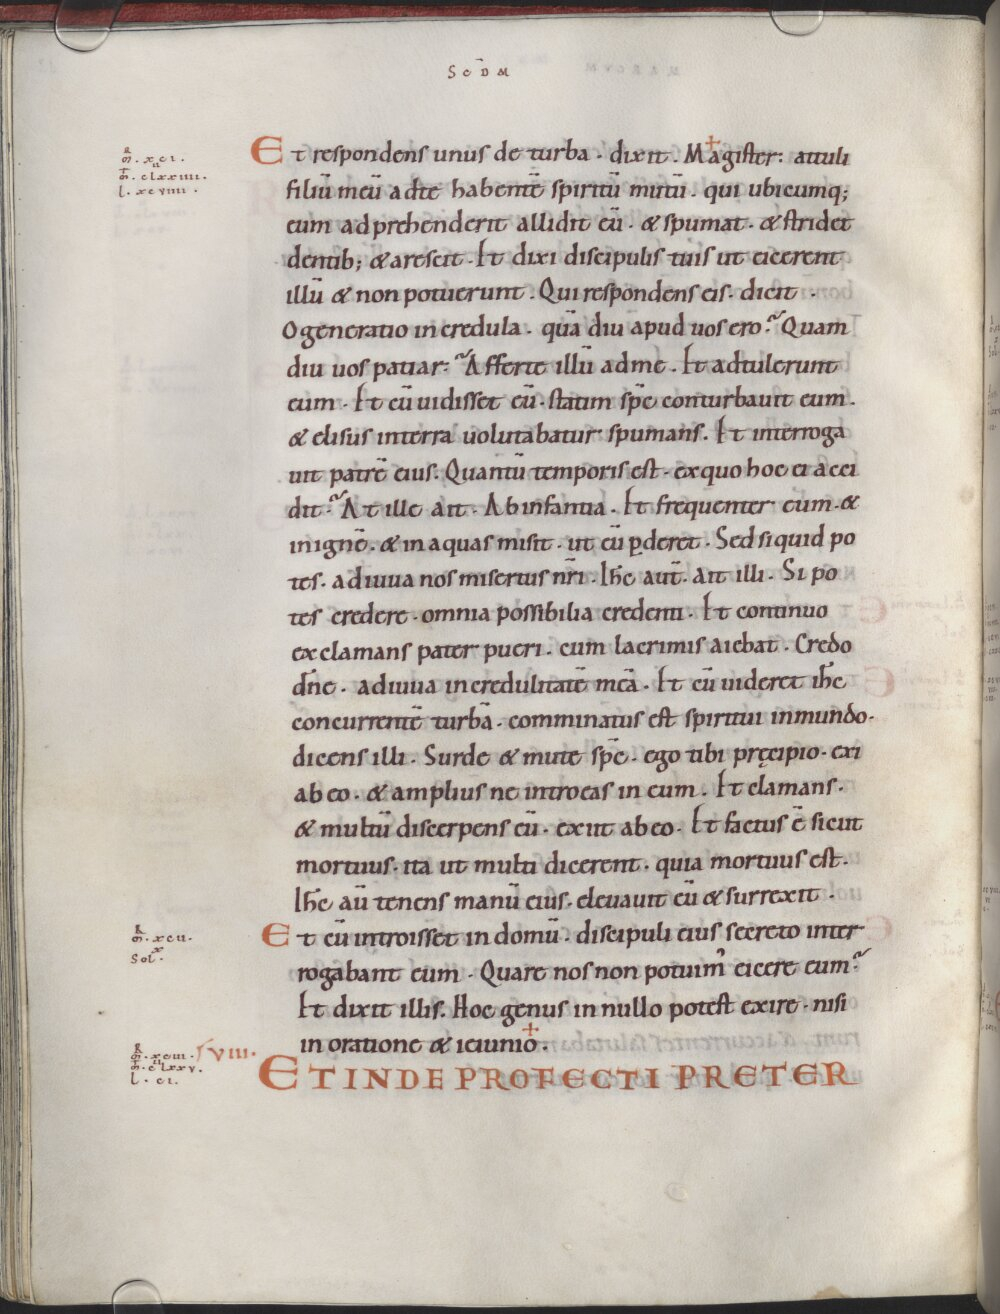 Scdm̄
Et respondens unus de turba · dixit · Magister: attuli
filiū meū ad te habentē spiritū mutū · qui ubicumq;
eum adprehenderit allidit eū · & spumat · & stridet
dentib; & arescit · Et dixi discipulis tuis ut eicerent
illū & non potuerunt · Qui respondens eis · dicit ·
O generatio incredula · quā diu apud uos ero? Quam
diu uos patiar? Afferte illū ad me · Et adtulerunt
eum · Et cū uidisset eū · statim sp̄c conturbauit eum ·
& elisus in terra uolutabatur spumans · Et interroga
uit patrē eius · Quantū temporis est · ex quo hoc ei acci
dit? At ille ait · Ab infantia · Et frequenter eum · &
in ignē · & in aquas misit · ut eū ꝑderet · Sed si quid po
tes · adiuua nos misertus nr̄i · Ih̄c aut̄ · ait illi · Si po
tes credere · omnia possibilia credenti · Et continuo
exclamans pater pueri · cum lacrimis aiebat · Credo
dn̄e · adiuua incredulitatē meā · Et cū uideret ih̄c
concurrentē turbā · comminatus est spiritui inmundo ·
dicens illi · Surde & mute sp̄c · ego tibi pręcipio · exi
ab eo · & amplius ne introeas in eum · Et clamans ·
& multū discerpens eū · exiit ab eo · Et factus ē sicut
mortuus · ita ut multi dicerent · quia mortuus est ·
Ih̄c aū tenens manū eius · eleuauit eū & surrexit ·
Et cū introisset in domū · discipuli eius secreto inter
rogabant eum · Quare nos non potuim᷒ eicere eum?
Et dixit illis · Hoc genus in nullo potest exire · nisi
in oratione & ieiunio ·
ET INDE PROFECTI PRETER
m̄ · xci ·
m̄ · clxxiiii ·
l · xcviiii ·
m̄ · xcii ·
Sol ·
m̄ · xciii · VIII ·
m̄ · clxxv ·
l · ci ·